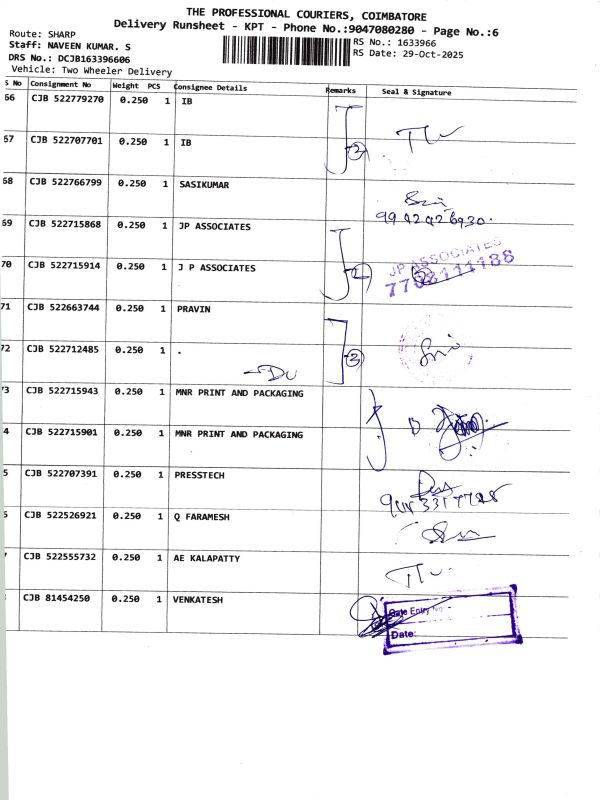 THE PROFESSIONAL COURIERS, COIMBATORE
Delivery Runsheet - KPT - Phone No.:9047080280 - Page No.:6
Route: SHARP
Staff: NAVEEN KUMAR. S
DRS No.: DCJB163396606
Vehicle: Two Wheeler Delivery
RS No.: 1633966
RS Date: 29-Oct-2025
S No Consignment No Weight PCS Consignee Details Remarks Seal & Signature
66 CJB 522779270 0.250 1 IB
67 CJB 522707701 0.250 1 IB
2
68 CJB 522766799 0.250 1 SASIKUMAR
9942426930.
69 CJB 522715868 0.250 1 JP ASSOCIATES
70 CJB 522715914 0.250 1 J P ASSOCIATES
JP ASSOCIATES
71 CJB 522663744 0.250 1 PRAVIN
72 CJB 522712485 0.250 1 .
73 CJB 522715943 0.250 1 MNR PRINT AND PACKAGING
4 CJB 522715901 0.250 1 MNR PRINT AND PACKAGING
5 CJB 522707391 0.250 1 PRESSTECH
6 CJB 522526921 0.250 1 Q FARAMESH
7 CJB 522555732 0.250 1 AE KALAPATTY
CJB 81454250 0.250 1 VENKATESH
Gate Entry No
Date: